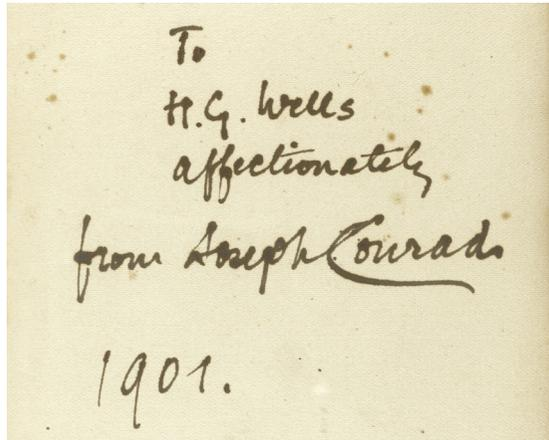 To
H.G. Wells
affectionately
from Joseph Conrad.
1901.